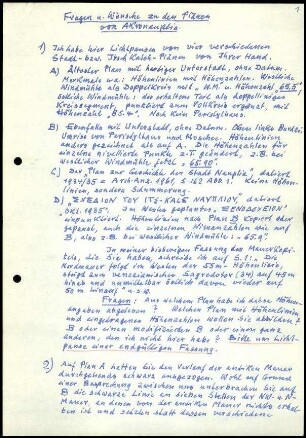 Fragen u. Wünsche zu den Plänen
von Akronauplia
1) Ich habe hier Lichtpausen von vier verschiedenen
Stadt- bzw. Itsch Kaleh-Plänen von Ihrer Hand.
A) Ältester Plan mit heutiger Unterstadt, ohne Datum.
Merkmale u.a.: Höhenlinien mit Höhenzahlen. Westliche
Windmühle als Doppelkreis mit "W.M." u. Höhenzahl
östliche Windmühle: das erhaltene Teil als doppelliniges
Kreissegment, punktiert zum Vollkreis ergänzt, mit
Höhenzahl Noch kein Persönliches
B) Ebenfalls mit Unterstadt, ohne Datum. Oben links
Umriss von und Moschee. Höhenlinien
anders gezeichnet als auf A. Die Höhenzahlen für
einzelne nivellierte Punkte z.T. geändert, z.B. bei
westlicher Windmühle jetzt
C) Der "Plan zur Geschichte der Stadt Nauplia", datiert
1934/35 = Arch. Anz. 1961, S. 162 Abb. 1. Keine Höhen-
linien, sondern Schummerung.
D) datiert
"Okt. 1935".
Höhenlinien nach Plan B kopiert oder
gepaust, auch die einzelnen Höhenzahlen wie auf
B, also z.B. bei westlicher Windmühle:
In meiner bisherigen Fassung des Manuskripts,
die Sie haben, schreibe ich auf S. 1: Die
Nordmauer folgt im Westen der 35m-Höhenlinie
steigt zum venezianischen Sagredotor (34) auf 45m
höher und unmittelbar östlich davon wieder auf
50 m hinauf" u.s.w.
Fragen: Aus welchem Plan habe ich daher Höhen-
angaben abgelesen? Welchen Plan mit Höhenlinien
und eingetragenen Höhenzahlen wollen Sie abbilden?
B oder einen modifizierten B oder einen ganz
anderen, den ich nicht hier habe? Bitte um Licht-
pause einer endgültigen Fassung.
2) Auf Plan A hatten Sie den Verlauf der antiken Mauer
durchgehends schwarz ausgezogen. Wohl auf Grund
einer Besprechung zwischen uns unterbrachen Sie auf
B die schwarze Linie an vielen Stellen der NW- u. N-
Mauer, an denen von der antiken Mauer nichts erhal-
ten ist und setzten statt dessen verschiedene